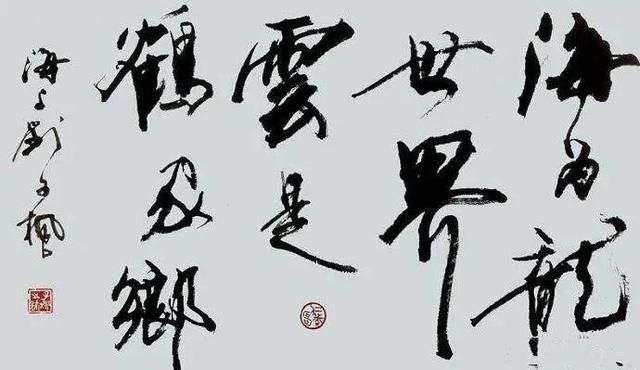 海為龍
世界
雲是
鶴家鄉
海上劉子楓